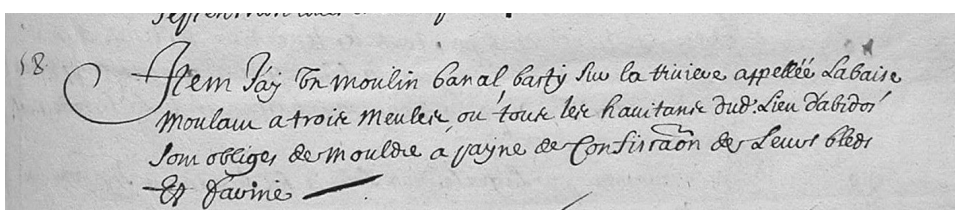 18. Item Jay Un moulin banal basty sur la riviere appellée Labaise
moulant a trois meules, ou tous les hauitans dud. Lieu dabidos
Sont obliges de mouldre a payne de Confiscaôn de Leurs bleds
Et farine